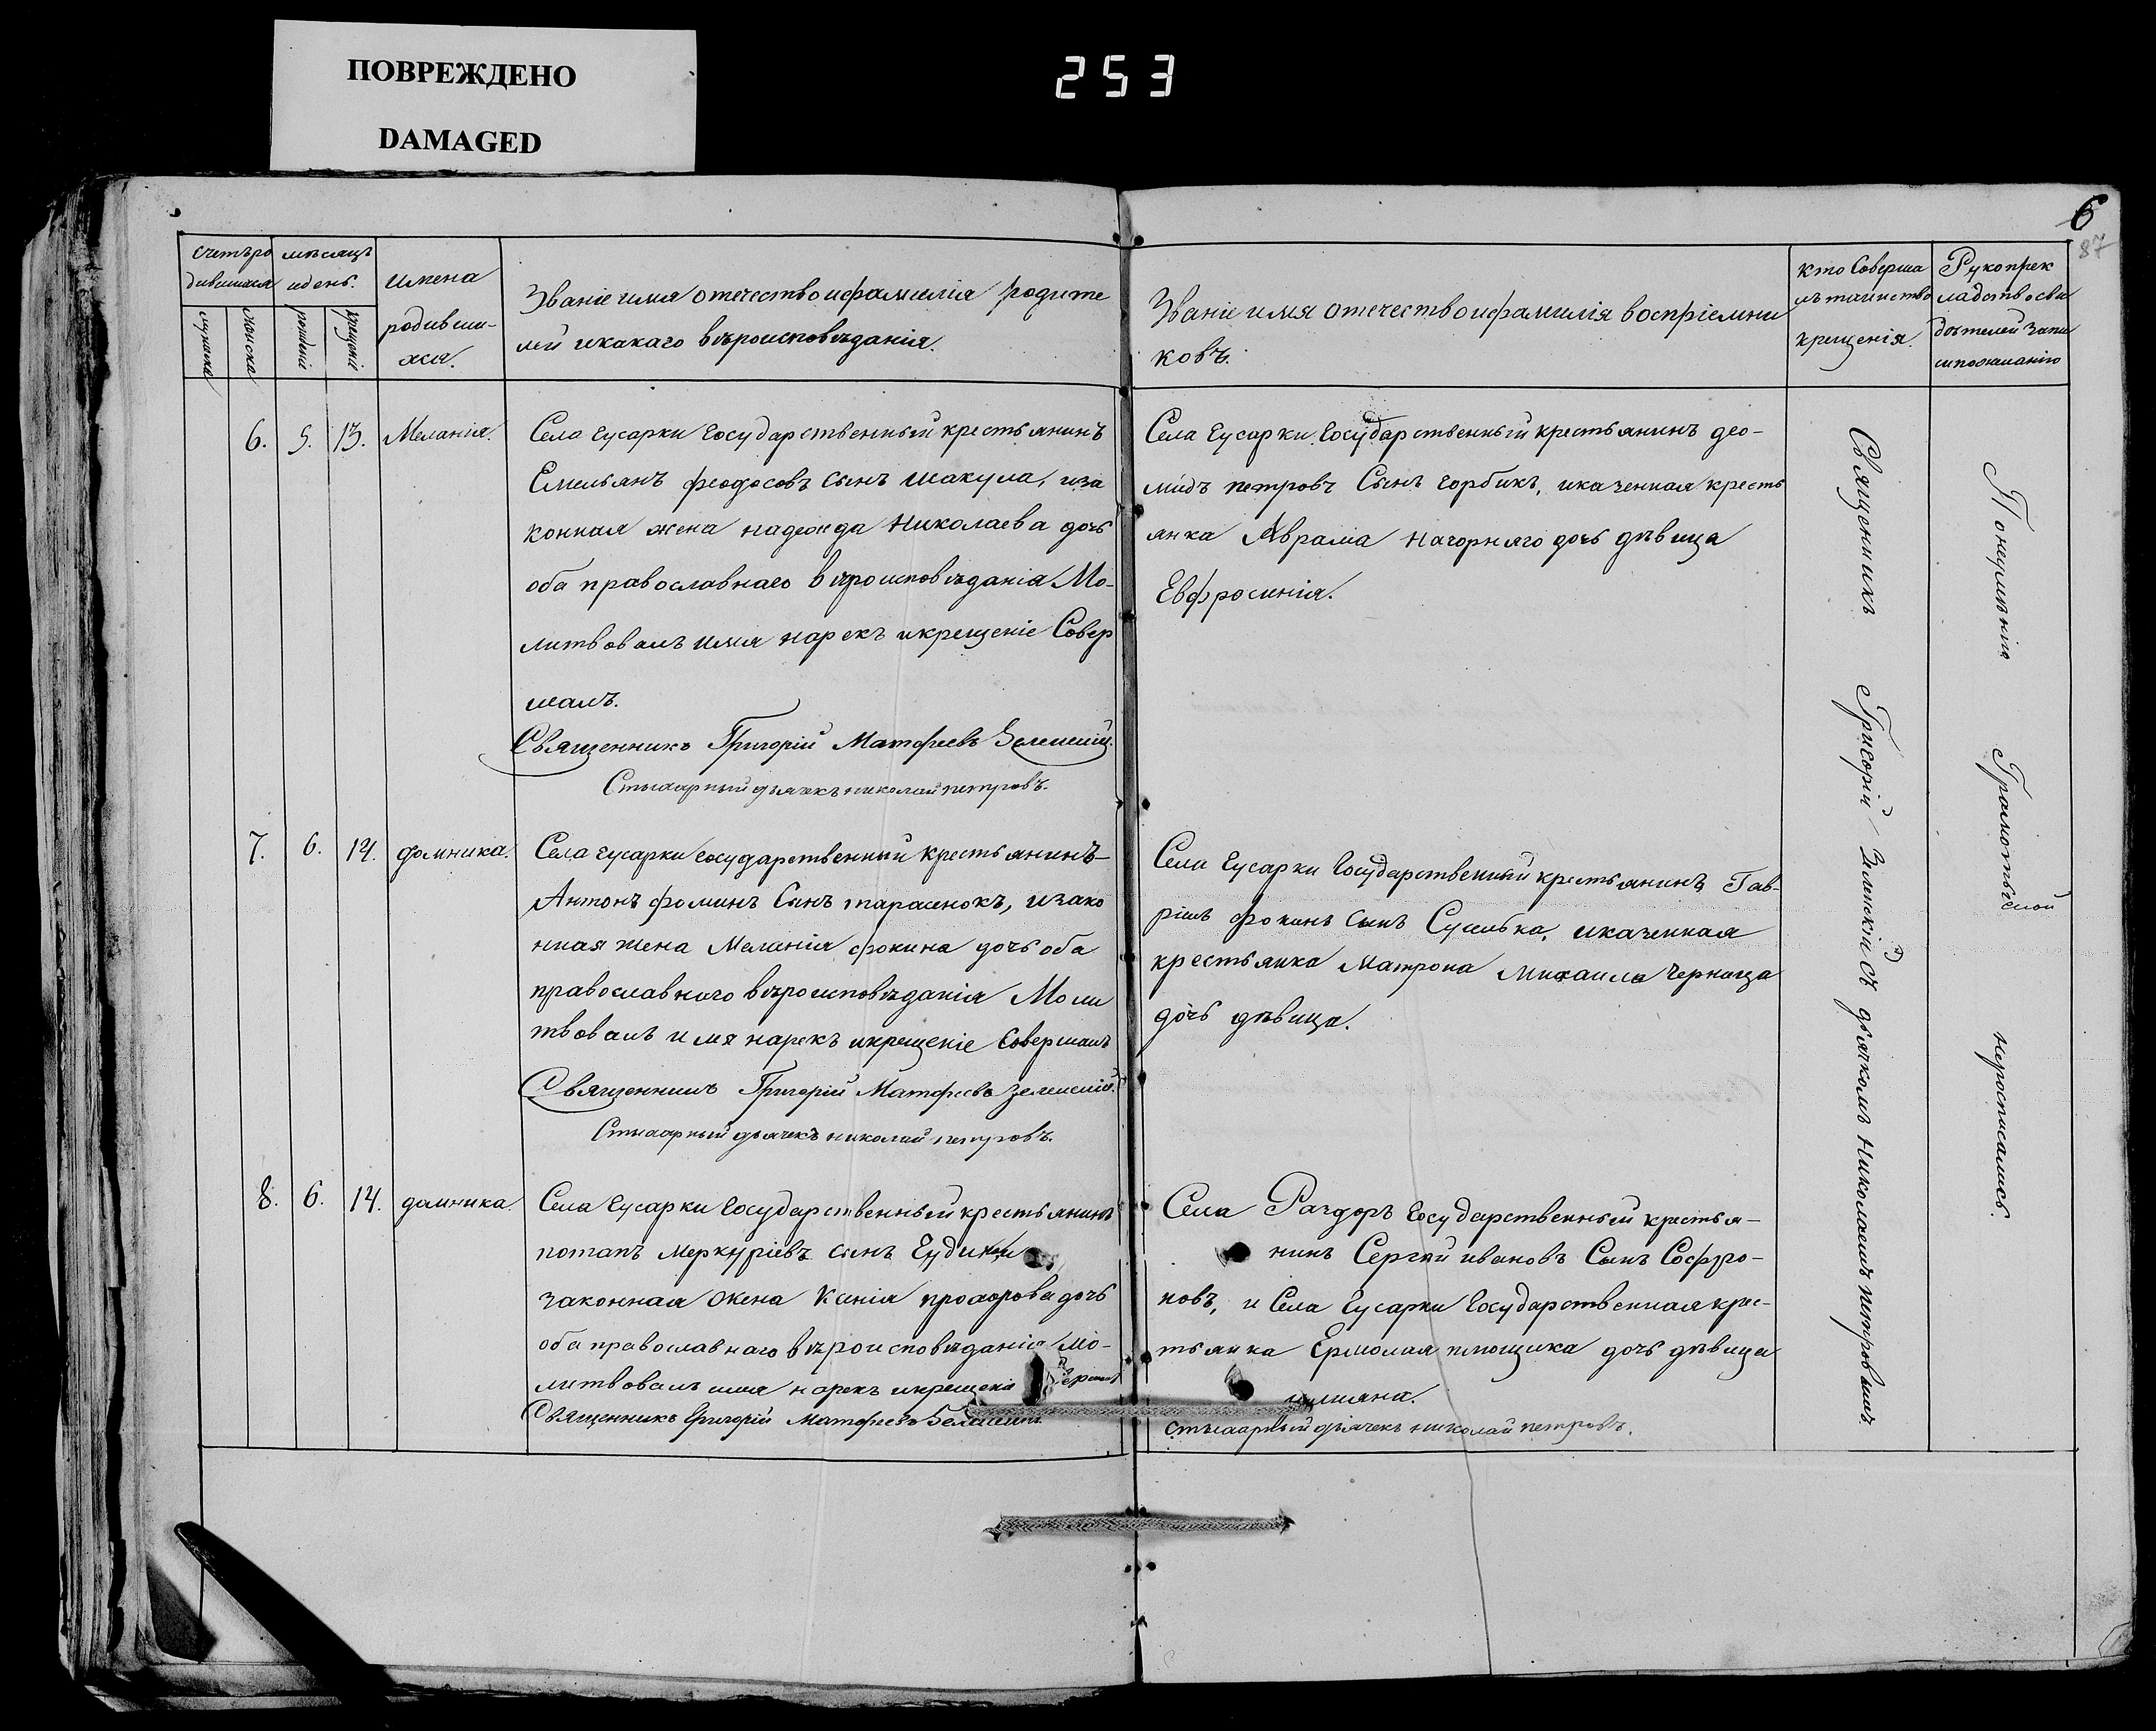 ПОВРЕЖДЕНО
DAMAGED
253
6
87
Счетъ ро
дившихся
мѣсяцъ
и день.
имена
родивши-
хся.
Званіе имя отечество и фамилія родите
лей и какаго вѣроисповѣданія.
Званіе имя отечество и фамилія воспріемни
ковъ.
кто Соверша
лъ таинство
крещенія.
Рукоприк
ладство сви
дѣтелей запи
си по желанію
мужеска
женска
рожденія
крещенія
6. 5. 13. Меланія.
Села Гусарки Государственный крестьянинъ
Емельянъ феодосовъ Сынъ шакула, и за
конная жена надежда Николаева дочь
оба православнаго вѣроисповѣданія Мо-
литвовалъ имя нарекъ и крещеніе Совер
шалъ.
Священникъ Григорій Матфеевъ Зеленскій.
Стихарный дьячекъ николай петровъ.
Села Гусарки Государственный крестьянинъ део-
мидъ петровъ Сынъ горбикъ, и казенная кресть
янка Авраміа нагорняго дочь дѣвица
Евфросинія.
7. 6. 14. домника.
Села Гусарки государственный крестьянинъ
Антонъ фоминъ Сынъ тарасенокъ, и зако
нная жена Меланія фокина дочь оба
православнаго вѣроисповѣданія Моли
твовалъ имя нарекъ и крещеніе Совершалъ
Священникъ Григорій Матфеевъ Зеленскій.
Стихарный дьячекъ николай петровъ.
Села Гусарки Государственный крестьянинъ Гав-
ріилъ фокинъ Сынъ и казенная
крестьянка Матрона Михаила Чернаца
дочь дѣвица.
8. 6. 14. домника.
Села Гусарки Государственный крестьянинъ
потапъ меркуріевъ сынъ
законная жена Ксенія прохорова дочь
оба православнаго вѣроисповѣданія Мо-
литвовалъ имя нарекъ и крещеніе
Священникъ Григорій Матфеевъ Зеленскій.
Села Раздоръ Государственный крестья-
нинъ Сергѣй ивановъ Сынъ Софро-
новъ, и Села Гусарки Государственная крес-
тьянка Ермолая дочь дѣвица
стихарный дьячекъ николай петровъ.
Священникъ Григорій Зеленскій Съ дьячкомъ Николаемъ петровымъ
По неумѣнію Грамотѣ не росписались.